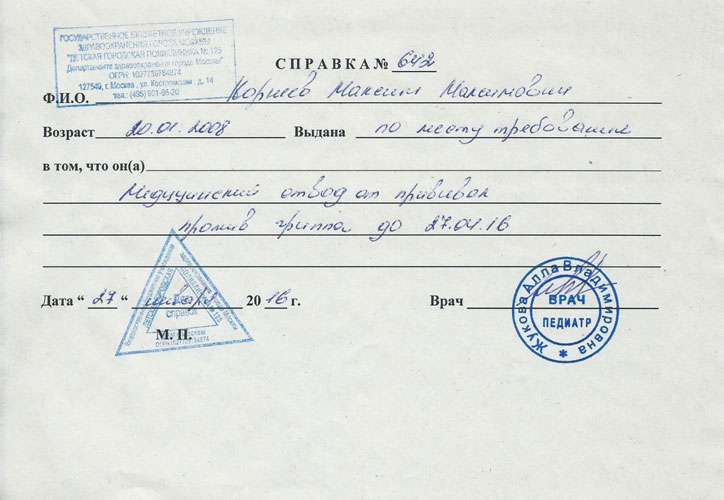 ГОСУДАРСТВЕННОЕ БЮДЖЕТНОЕ УЧРЕЖДЕНИЕ
ЗДРАВООХРАНЕНИЯ ГОРОДА МОСКВЫ
"ДЕТСКАЯ ГОРОДСКАЯ ПОЛИКЛИНИКА № 125
Департамента здравоохранения города Москвы"
ОГРН:
127549, г. Москва, ул. Костромская, д. 14
тел.: (495) 901-96-20
СПРАВКА № 642
Ф.И.О. Максим Максимович
Возраст 20.01.2008 Выдана по месту требования
в том, что он(а)
Медицинский отвод от прививок
против гриппа до 27.04.16
Дата “ 27 “ января 2016 г. Врач
Для справок
М. П.
Жукова Алла Владимировна
ВРАЧ
ПЕДИАТР